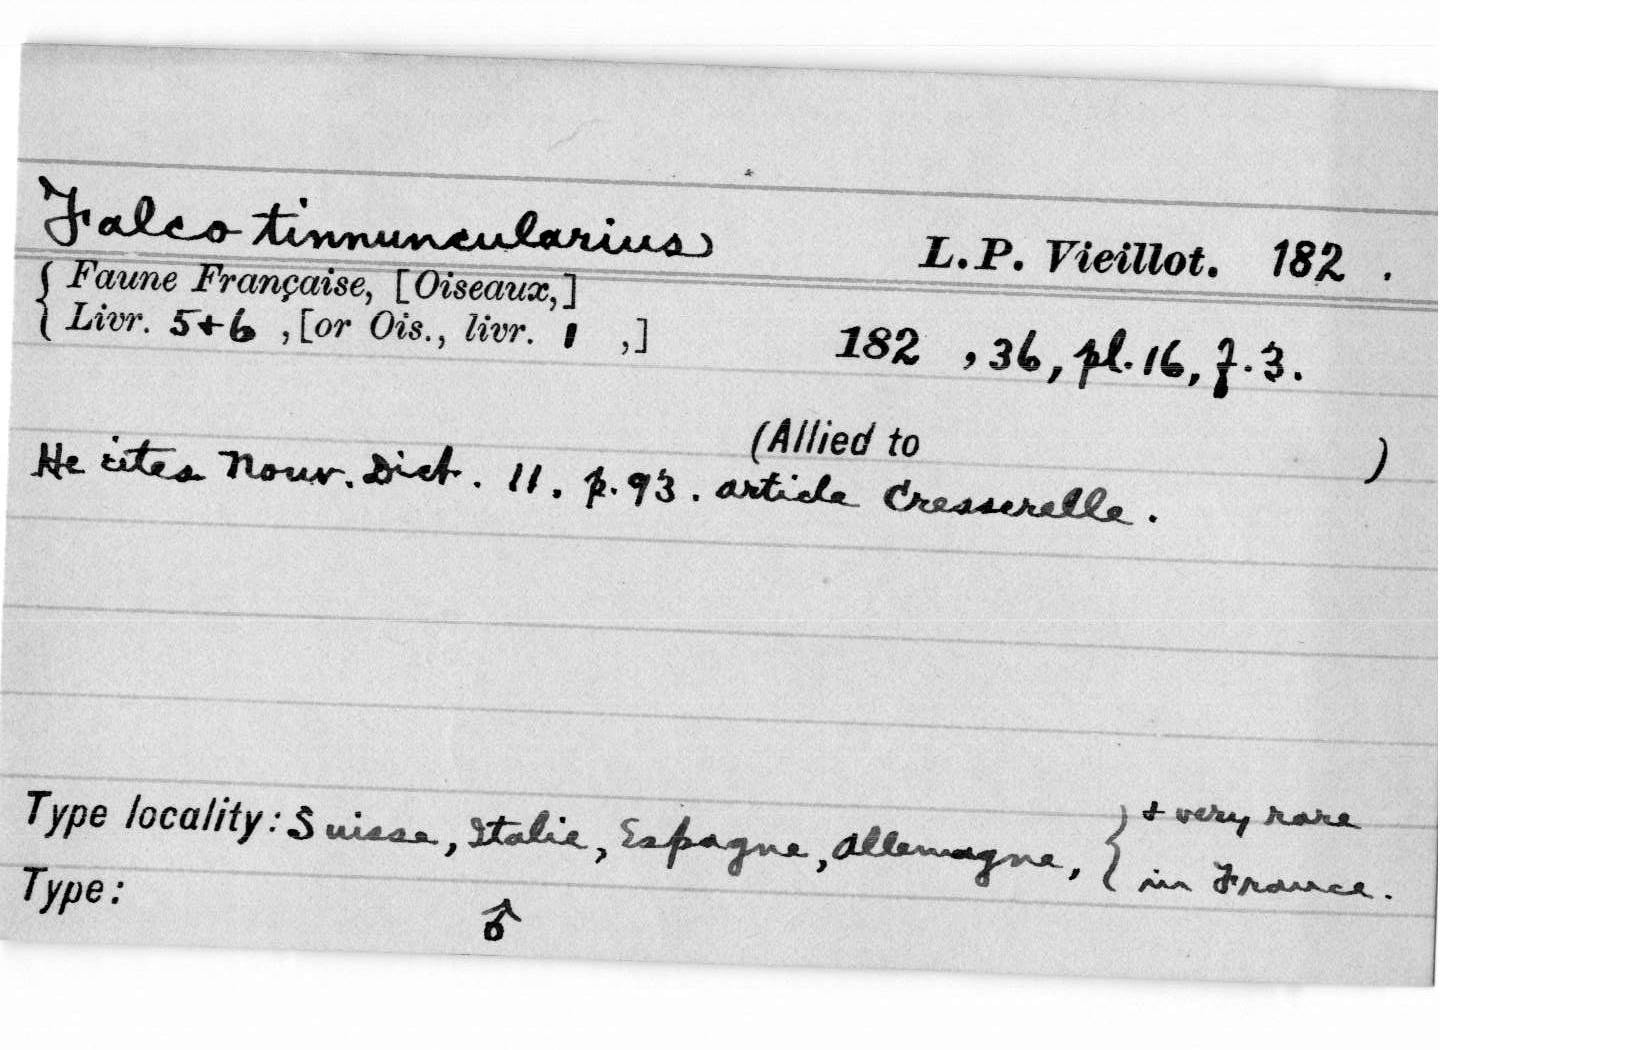 Falco tinnuncularius L.P. Vieillot. 182 .
{ Faune Française, [Oiseaux,]
{ Livr. 5+6 , [or Ois., livr. 1 ,] 182 , 36, pl. 16, f. 3.
(Allied to )
He cites Nouv. Dict. 11. p. 93. article Cresserelle.
Type locality: Suisse, Italie, Espagne, Allemagne, } + very rare
{ in France.
Type: ♂